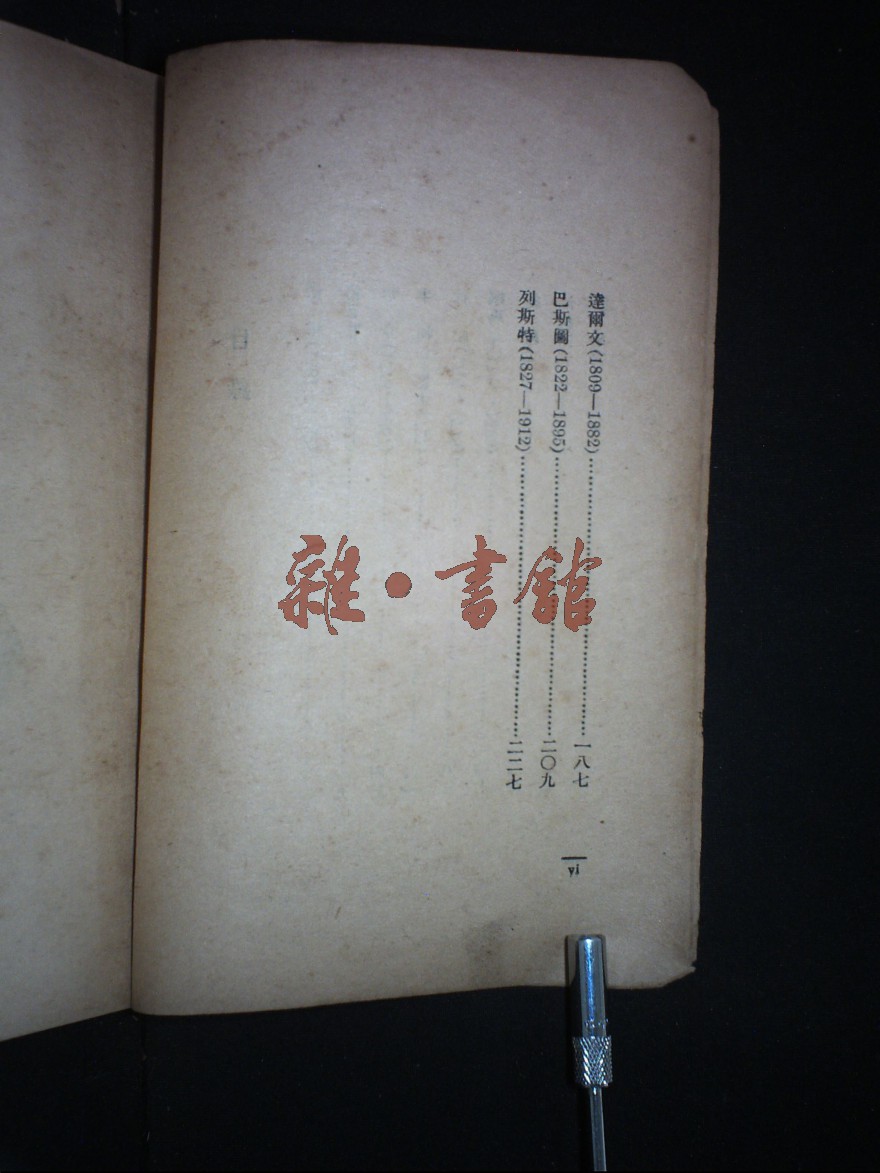 達爾文(1809—1882)……一八七
巴斯圖(1822—1895)……二〇九
列斯特(1827—1912)……二二七
vi
雜·書館